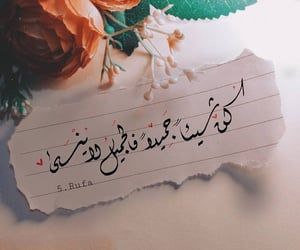 كن شيئاً جميلاً فالجميل لا ينسى
S.Rufa